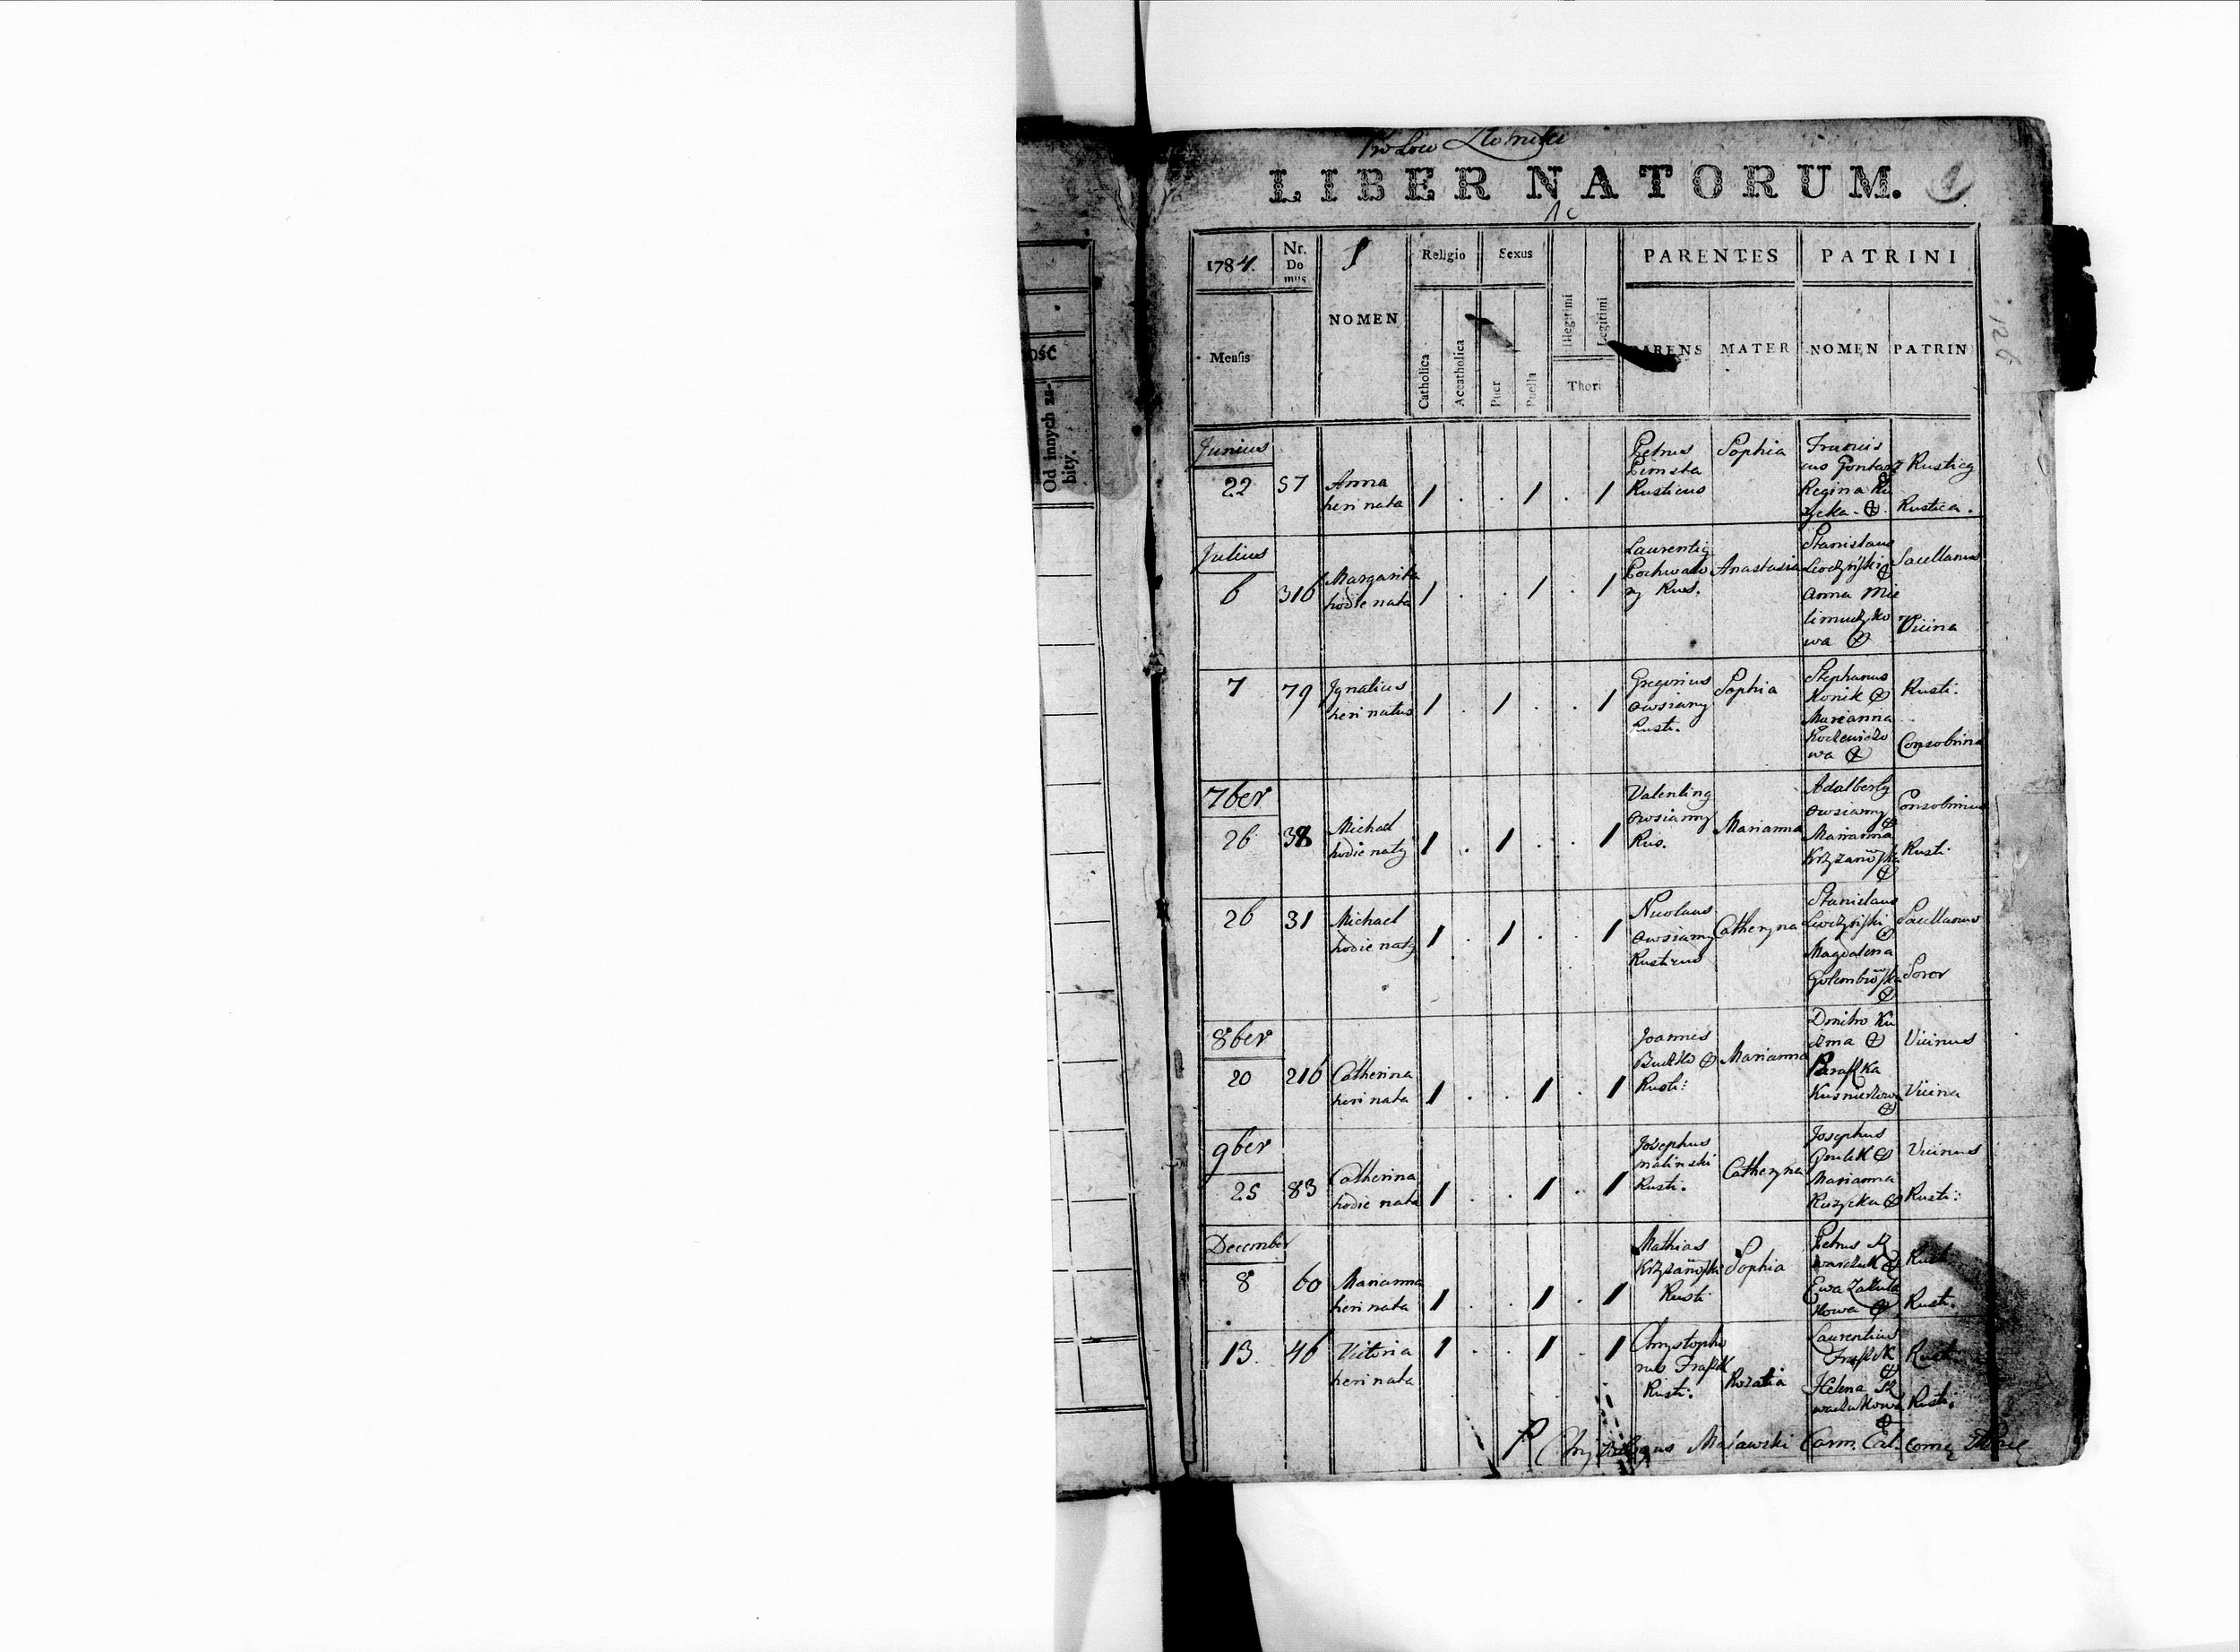 OŚĆ
Od innych za-
bity.
Pro Loco
LIBER NATORUM.
126
1784.
Nr.
Do
mus
Religio
Sexus
PARENTES
PATRINI
Mensis
NOMEN
Catholica
Accatholica
Puer
Puella
Illegitimi
Legitimi
Thori
PARENS
MATER
NOMEN
PATRIN
Junius
22
57
Anna
heri nata
1 . . 1 . 1
Petrus
Pimsta
Rusticus
Sophia
Francis
cus Gontarz
Regina Ru
zycka
Rustic9
Rustica.
Julius
6
316
Margarita
hodie nata
1 . . 1 . 1
Laurenti9
Pochwalo
ny Rus.
Anastasia
Stanislaus
Anna Mie
limuczko
wa
Sacellanus
Vicina
7
79
Ignatius
heri natus
1 . 1 . . 1
Gregorius
Owsiany
Rusti.
Sophia
Stephanus
Konik
Marianna
wa
Rusti.
Consobrina
7ber
26
38
Michael
hodie nat9
1 . 1 . . 1
Valentin9
Owsiany
Rus.
Marianna
Adalbert9
Owsiany
Marianna
Krzyzanowska
Consobrinus
Rusti
26
31
Michael
hodie nat9
1 . 1 . . 1
Nicolaus
Owsiany
Rusticus
Catheryna
Stanislaus
Magdalena
Golembiowska
Sacellanus
Soror
8ber
20
216
Catherina
heri nata
1 . . 1 . 1
Joannes
Rusti:
Marianna
Dmitro Ku
zma
Paraska
Kusnierzowa
Vicinus
Vicina
9ber
25
83
Catherina
hodie nata
1 . . 1 . 1
Josephus
Malinski
Rusti.
Catheryna
Josephus
Marianna
Ruzycka
Vicinus
Rusti:
December
8
60
Marianna
heri nata
1 . . 1 . 1
Mathias
Krzyzanowski
Rusti
Sophia
Petrus Sz
waczuk
Ewa
Rusti
Rusti.
13.
46
Victoria
heri nata
1 . . 1 . 1
Chrystopho
rus
Rusti.
Rozalia
Laurentius
Helena Sz
waczukowa
Rusti
Rusti.
P Chryzologus Malawski Carm. Cal.